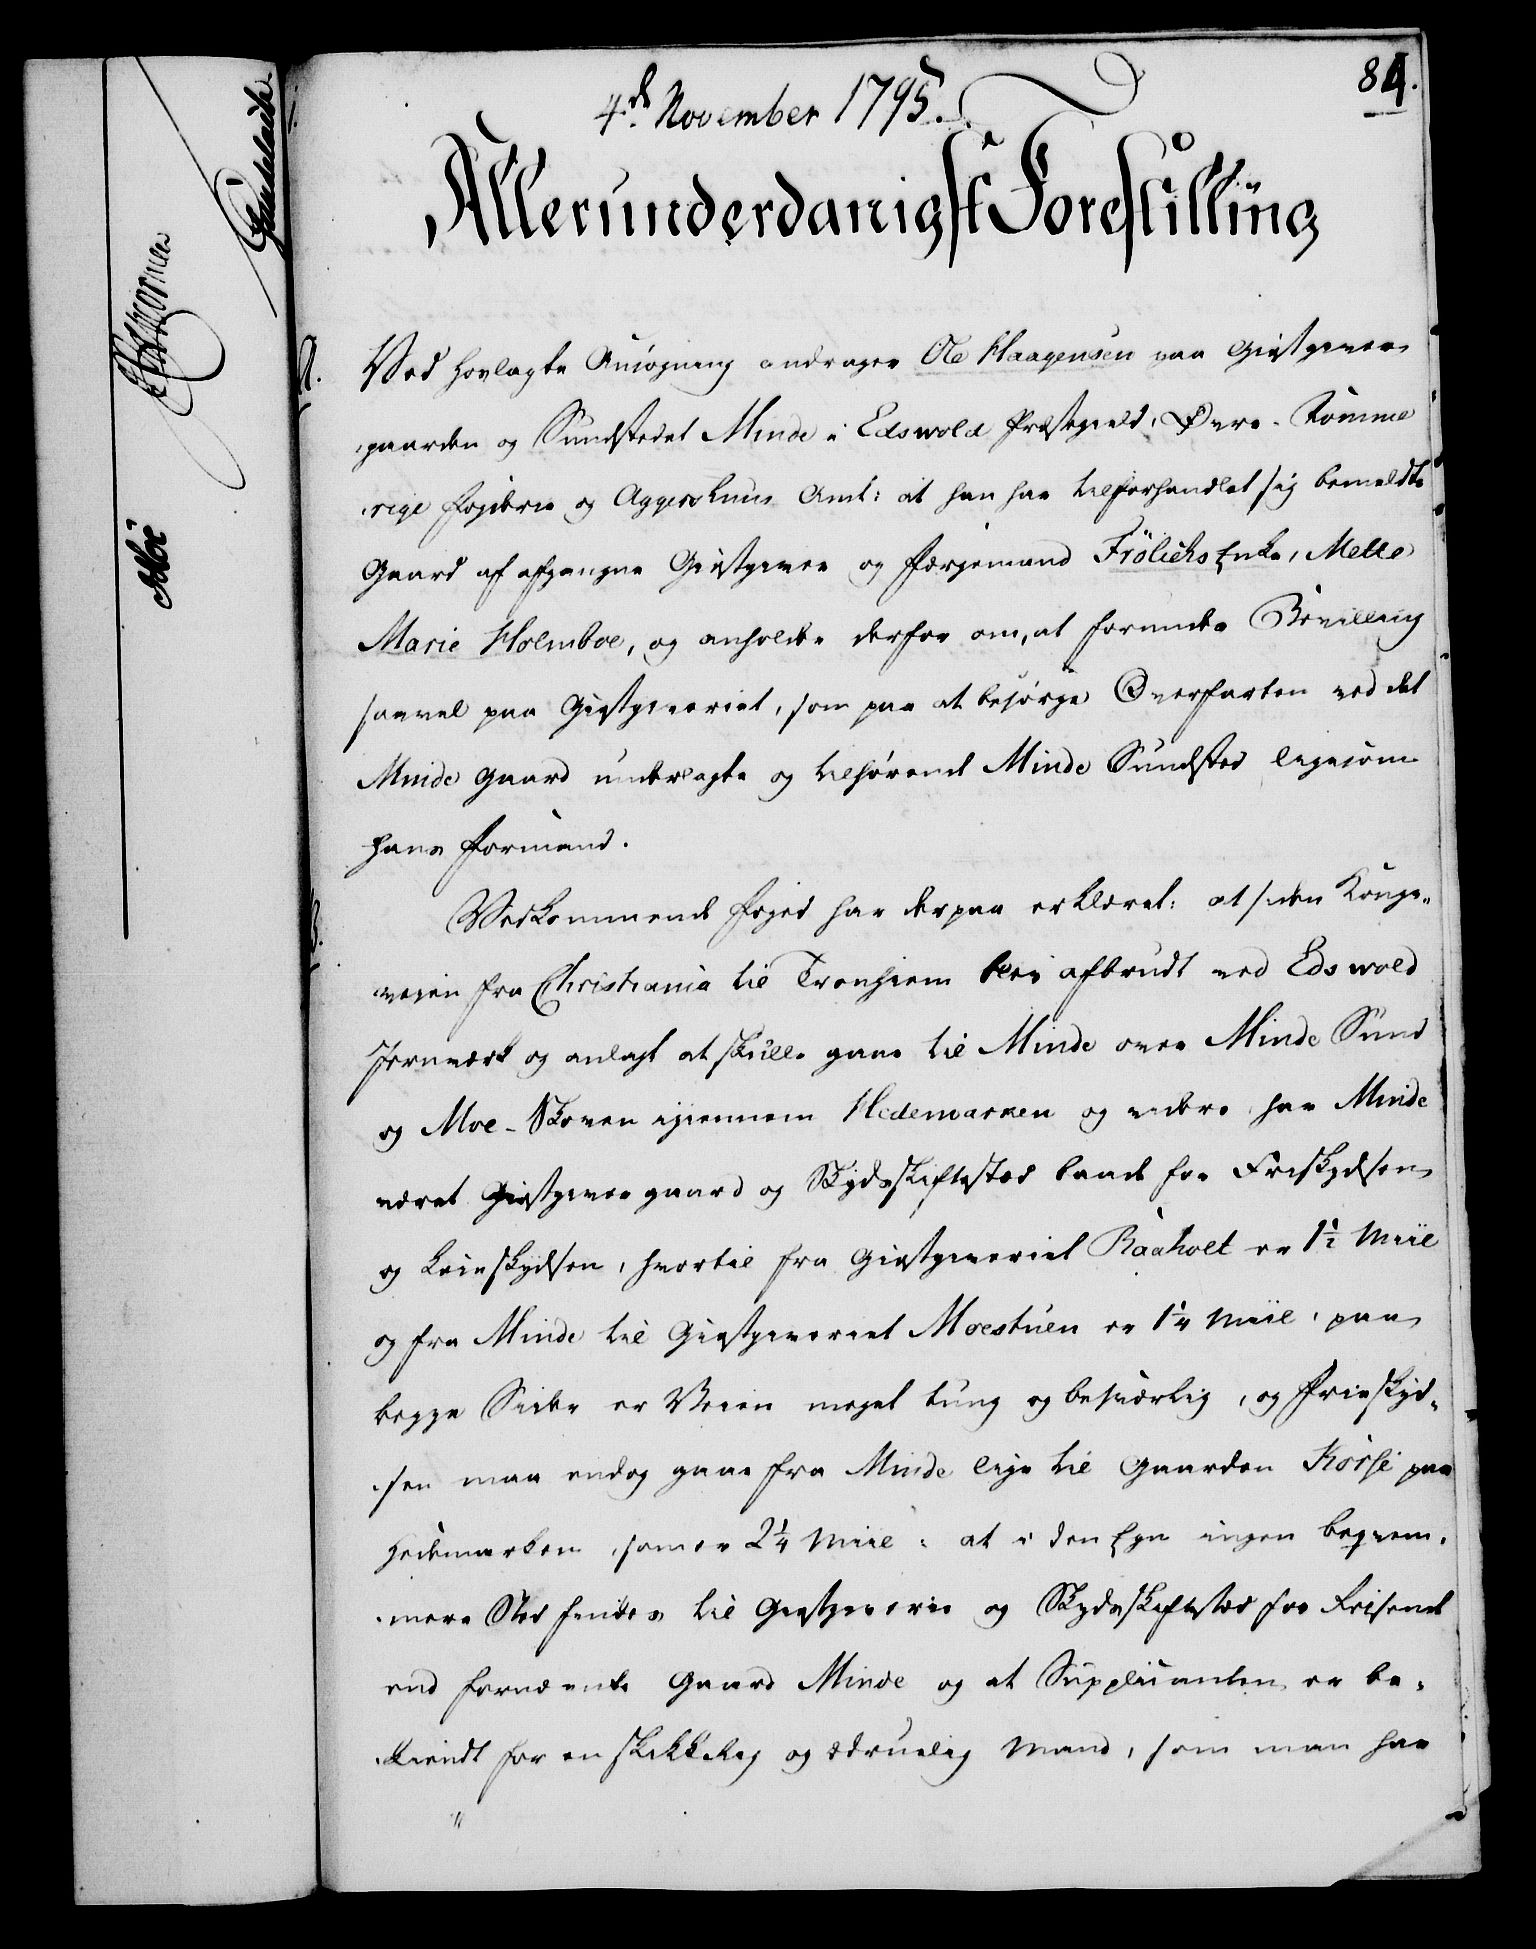 84.
4de November 1795.
Allerunderdanigst Forestilling
A. Ved hoslagte Ansøgning andrager Ole Haagensen paa Giestgiver-
gaarden og Sundstedet Minde i Edswold Præstegield, Øvre-Romme
rige Fogderie og Aggershuus Amt: at han har tilforhandlet sig bemeldte
Gaard af afgangne Giestgiver og Færgemand Frölichs Enke, Mette
Marie Holmboe, og anholder derfor om, at forundes Bevilling
saavel paa Giestgiveriet, som paa at besørge Overfarten ved det
Minde Gaard underlagte og tilhørende Minde Sundsted ligesom
hans Formand.
B. Vedkommende Foged har derpaa erklæret: at siden Konge-
veien fra Christiania til Tronhiem blev afbrudt ved Edswold
Jernværk og anlagt at skulle gaae til Minde over Minde Sund
og Moe-Skoven igiennem Hedemarken og videre har Minde
været Giestgivergaard og Skydsskiftested baade for Friskydsen
og Leieskydsen, hvortil fra Giestgiveriet Raaholt er 1½ Miil
og fra Minde til Giestgiveriet Moestuen er 1¼ Miil, paa
begge Sider er Veien meget tung og besværlig, og Frieskyd-
sen maa endog gaae fra Minde lige til Gaarden Korse paa
Hedemarken, som er 2¼ Miil: at i den Egn ingen beqvem-
mere Sted findes til Giestgiverie og Skydsskiftested for Reisende
end fornævnte Gaard Minde og at Supplicanten er be-
kiendt for en skikkelig og ædruelig Mand, som man har
Moe